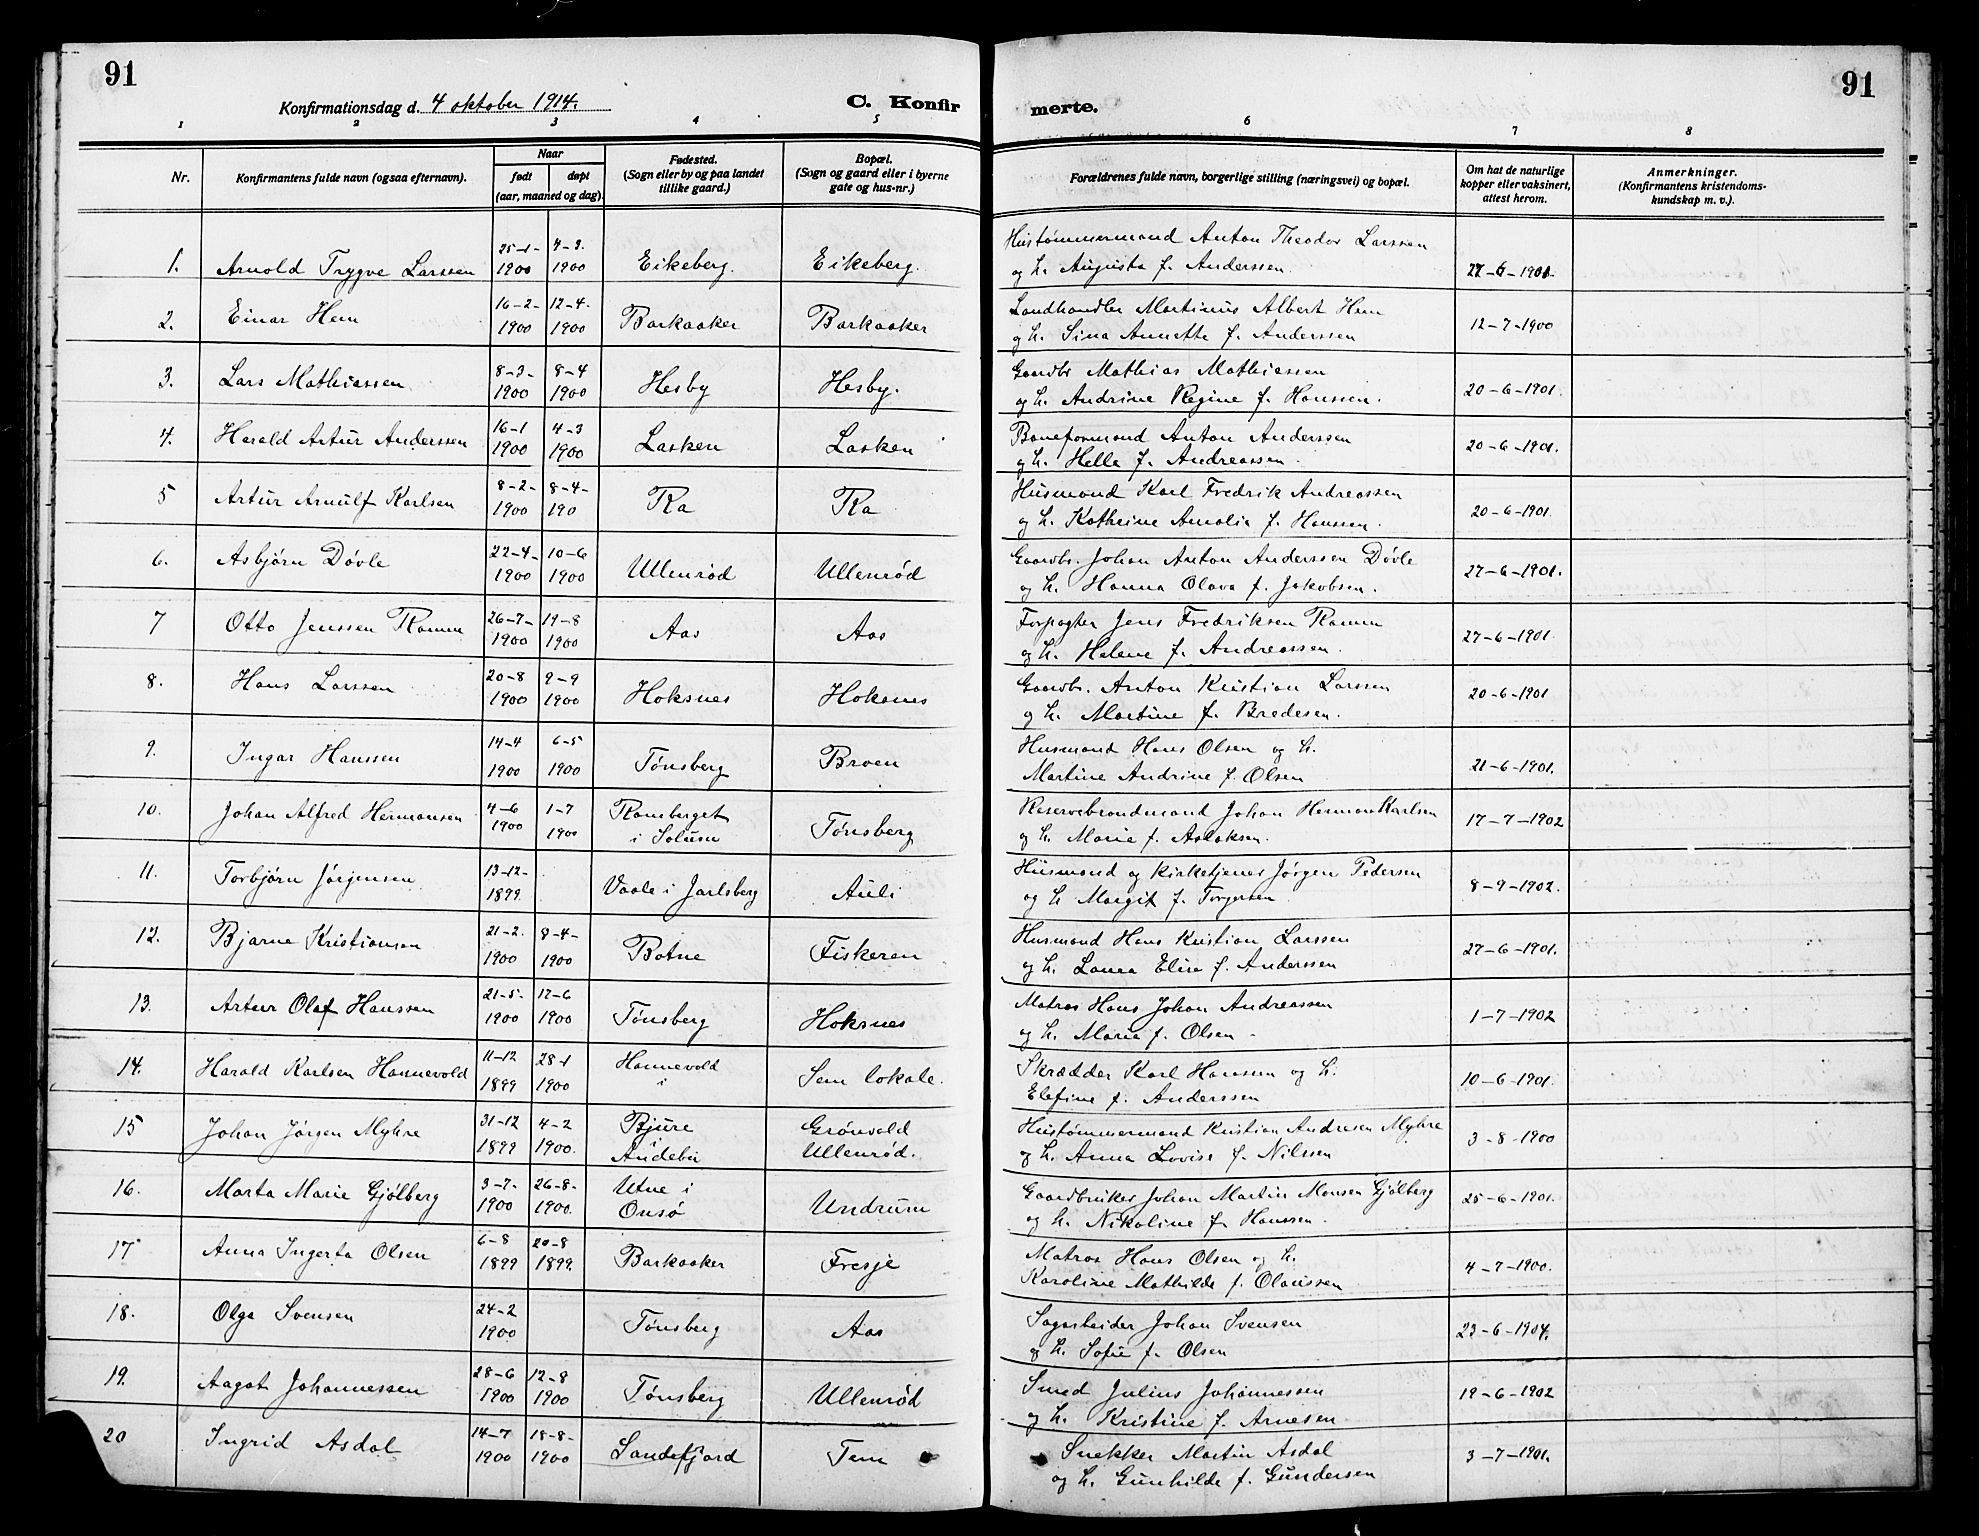 91
Konfirmationsdag d. 4 oktober 1914.
C. Konfirmerte.
91
1 2 3 4 5 6 7 8
Nr.
Konfirmantens fulde navn (ogsaa efternavn).
Naar
født døpt
(aar, maaned og dag).
Fødested.
(Sogn eller by og paa landet
tillike gaard.)
Bopæl.
(Sogn og gaard eller i byerne
gate og hus-nr.)
Forældrenes fulde navn, borgerlige stilling (næringsvei) og bopæl.
Om hat de naturlige
kopper eller vaksinert,
attest herom.
Anmerkninger.
(Konfirmantens kristendoms-
kundskap m. v.).
25-1- 4-3. Hustømmermand Anton Theodor Larssen
1. Arnold Trygve Larssen 1900 1900 Eikeberg. Eikeberg. og h. Augusta f. Anderssen. 27-6-1901.
16-2- 12-4- Landhandler Martinus Albert Hem
2. Einar Hem 1900 1900 Barkaaker Barkaaker og h. Sina Annette f. Anderssen 12-7-1900
8-3- 8-4 Gaardbr Mathias Mathiassen
3. Lars Mathiassen 1900 1900 Hesby Hesby. og h. Andrine Regine f. Hanssen. 20-6-1901.
16-1 4-3 Baneformand Anton Anderssen
4. Harald Artur Anderssen 1900 1900 Lasken Lasken og h. Helle f. Andreassen. 20-6-1901.
8-2- 8-4- Husmand Karl Fredrik Andreassen
5 Artur Arnulf Karlsen 1900 190 Ra Ra og h. Kathrine Amalie f. Hanssen. 20-6-1901.
22-4- 10-6 Gaardbr. Johan Anton Anderssen Døvle
6. Asbjørn Døvle 1900 1900 Ullenrød Ullenrød og h. Hanna Olava f. Jakobsen. 27-6-1901.
26-7- 19-8 Forpagter Jens Fredriksen Ramm
7 Otto Jenssen Ramm 1900 1900 Aas Aas og h. Helene f. Andreassen. 27-6-1901.
20-8 9-9 Gaardbr. Anton Kristian Larssen
8. Hans Larssen 1900 1900 Hoksnes Hoksnes og h. Martine f. Bredesen. 20-6-1901
14-4 6-5 Husmand Hans Olsen og h.
9. Ingar Hanssen 1900 1900 Tønsberg Broen Martine Andrine f. Olsen 21-6-1901.
4-6 1-7 Ramberget Reservebrandmand Johan Herman Karlsen
10. Johan Alfred Hermansen 1900 1900 i Solum Tønsberg og h. Marie f. Aslaksen. 17-7-1902
13-12- Husmand og kirketjener Jørgen Pedersen
11. Torbjørn Jørgensen 1899. Vaale i Jarlsberg Auli og h Margit f. Torgersen 8-9-1902.
21-2. 8-4- Husmand Hans Kristian Larssen
12. Bjarne Kristiansen 1900 1900 Botne Fiskeren og h. Laura Elise f. Anderssen 27-6-1901.
21-5- 17-6 Matros Hans Johan Andreassen
13. Artur Olaf Hanssen 1900 1900 Tønsberg Hoksnes og h. Marie f. Olsen - 1-7-1902
11-12 28-1 Hannevold Skrædder Karl Hanssen og h.
14. Harald Karlsen Hannevold 1899 1900 i Sem lokale. Elefine f. Anderssen 10-6-1901.
31-12 4-2 Bjure i Grønvold Hustømmermand Kristian Andresen Myhre
15 Johan Jørgen Myhre 1899 1900. Andebu Ullenrød. og h. Anna Lovise f. Nilssen 3-8-1900
3-7- 26-8- Utne i Gaardbruker Johan Martin Mansen Gjølberg
16. Marta Marie Gjølberg 1900 1900. Onsø Undrum og h. Nikoline f. Hanssen. 25-6-1901.
6-8 20-8 Matros Hans Olsen og h.
17 Anna Ingerta Olsen 1899 1899. Barkaaker Fresje Karoline Mathilde f. Olaussen 4-7-1900.
24-2 Sagarbeider Johan Svensen
18. Olga Svensen 1900 Tønsberg Aas og h. Sofie f. Olsen 23-6-1904.
28-6 12-8 Smed Julius Johannessen
19. Aagot Johannessen 1900 1900 Tønsberg Ullenrød og h. Kristine f. Arnesen 19-6-1902
14-7 18-8- Snekker Martin Asdal
20 Ingrid Asdal 1900 1900 Sandefjord Tem og h. Gunhilde f. Gundersen 3-7-1901.